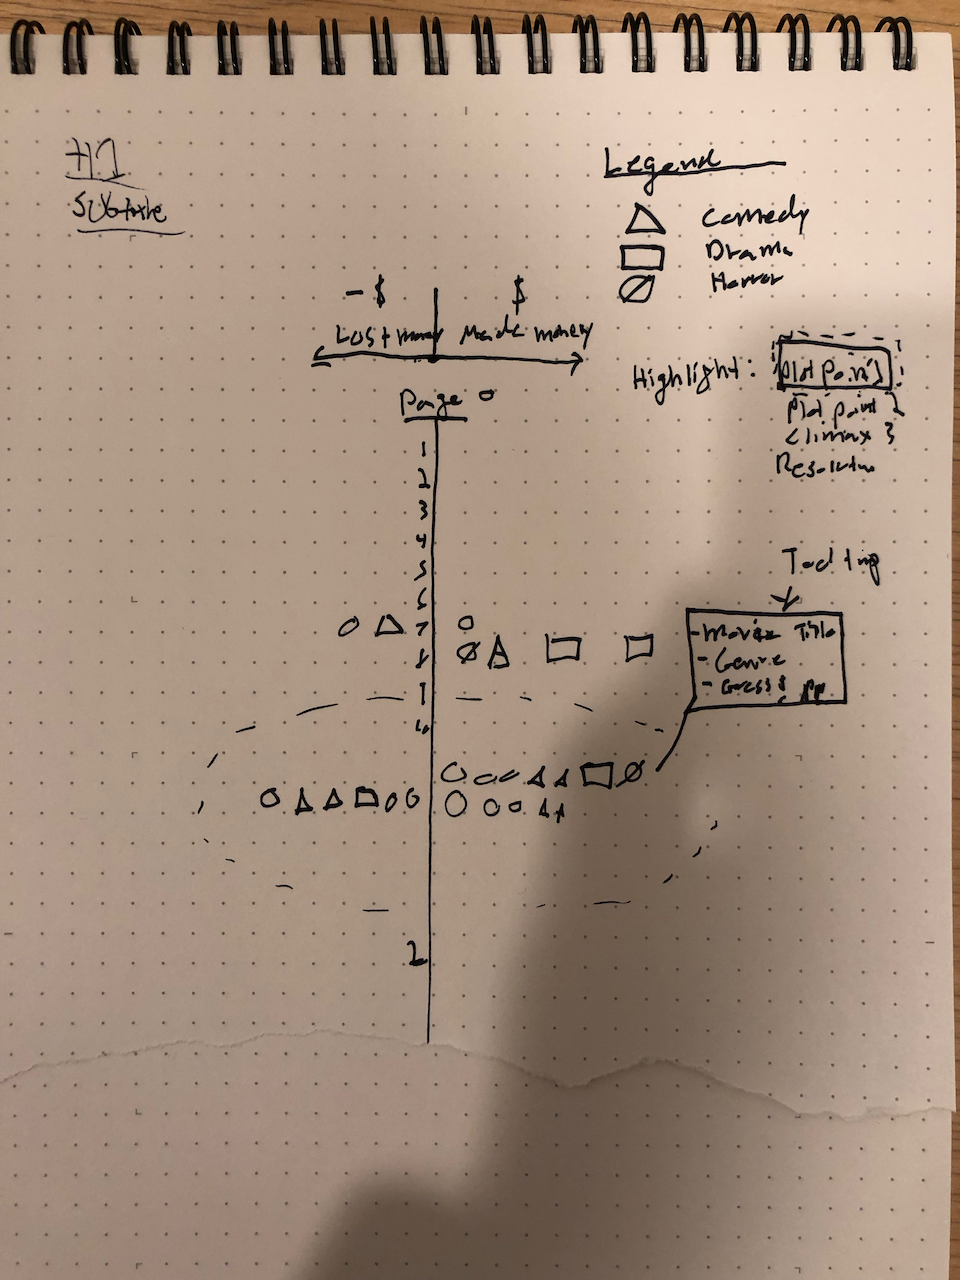 H1
Subtitle
Legend
Comedy
Drama
Horror
- $ $
Lost money Made money
Highlight: Plot point 1
Plot point 2
Climax 3
Resolution
Page 0
1
2
3
4
5
6
7
8
9
Tool tip
- Movie Title
- Genre
- Gross $
2